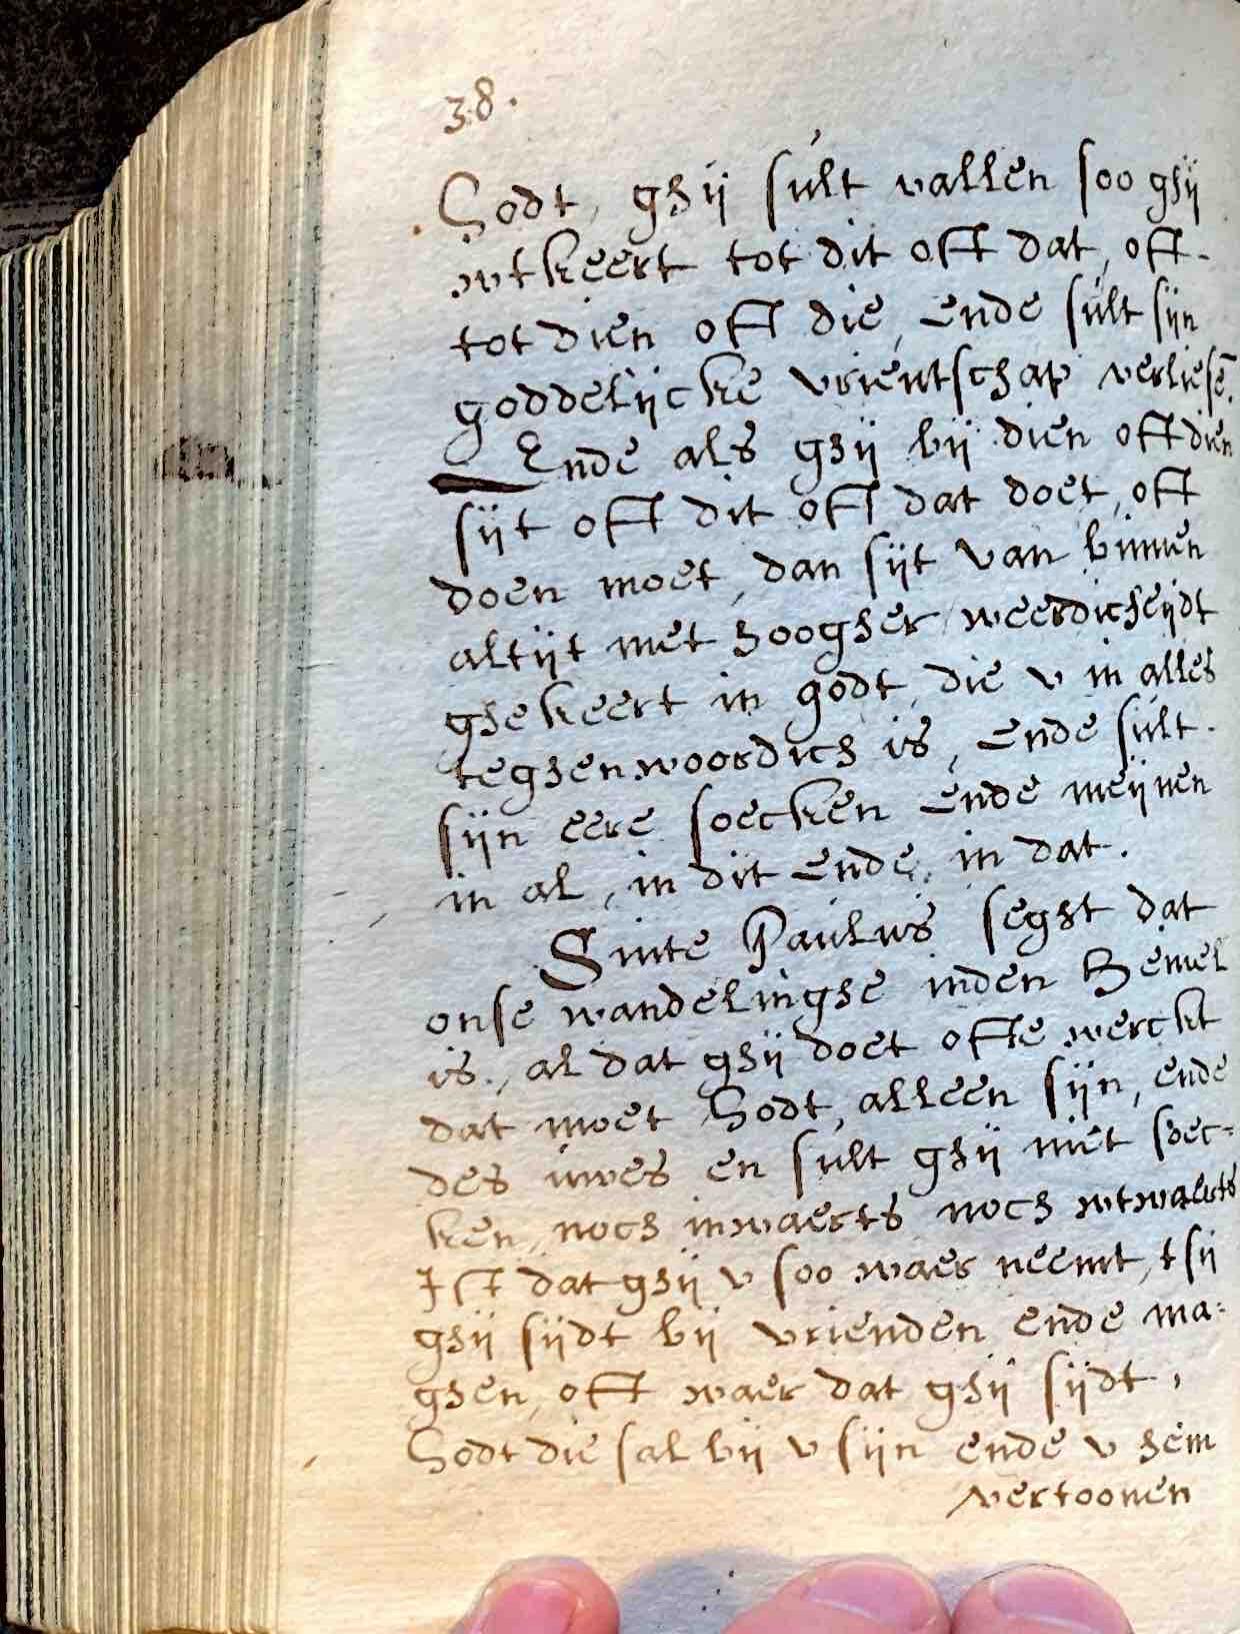 38.
Godt, ghij sult vallen soo ghij
wtkeert tot dit oft dat, oft
tot dien oft die, ende sult sijn
goddelijcke vrientschap verliesē.
Ende als ghij bij dien oft dien
sijt oft dit oft dat doet, oft
doen moet, dan sijt van binnen
altijt met hoogher weerdicheijdt
ghekeert in godt, die v in alles
teghenwoordich is, ende sult
sijn eere soecken ende meijnen
in al, in dit ende, in dat.
Sinte Paulus seght dat
onse wandelinghe inden Hemel
is, al dat ghij doet ofte werckt
dat moet Godt, alleen sijn, ende
des uwes en sult ghij niet soec=
ken, noch inwaerts noch wtwaerts
Ist dat ghij v soo waer neemt, tsij
ghij sijdt bij vrienden ende ma=
ghen, oft waer dat ghij sijdt,
Godt die sal bij v sijn ende v hem
vertoonen